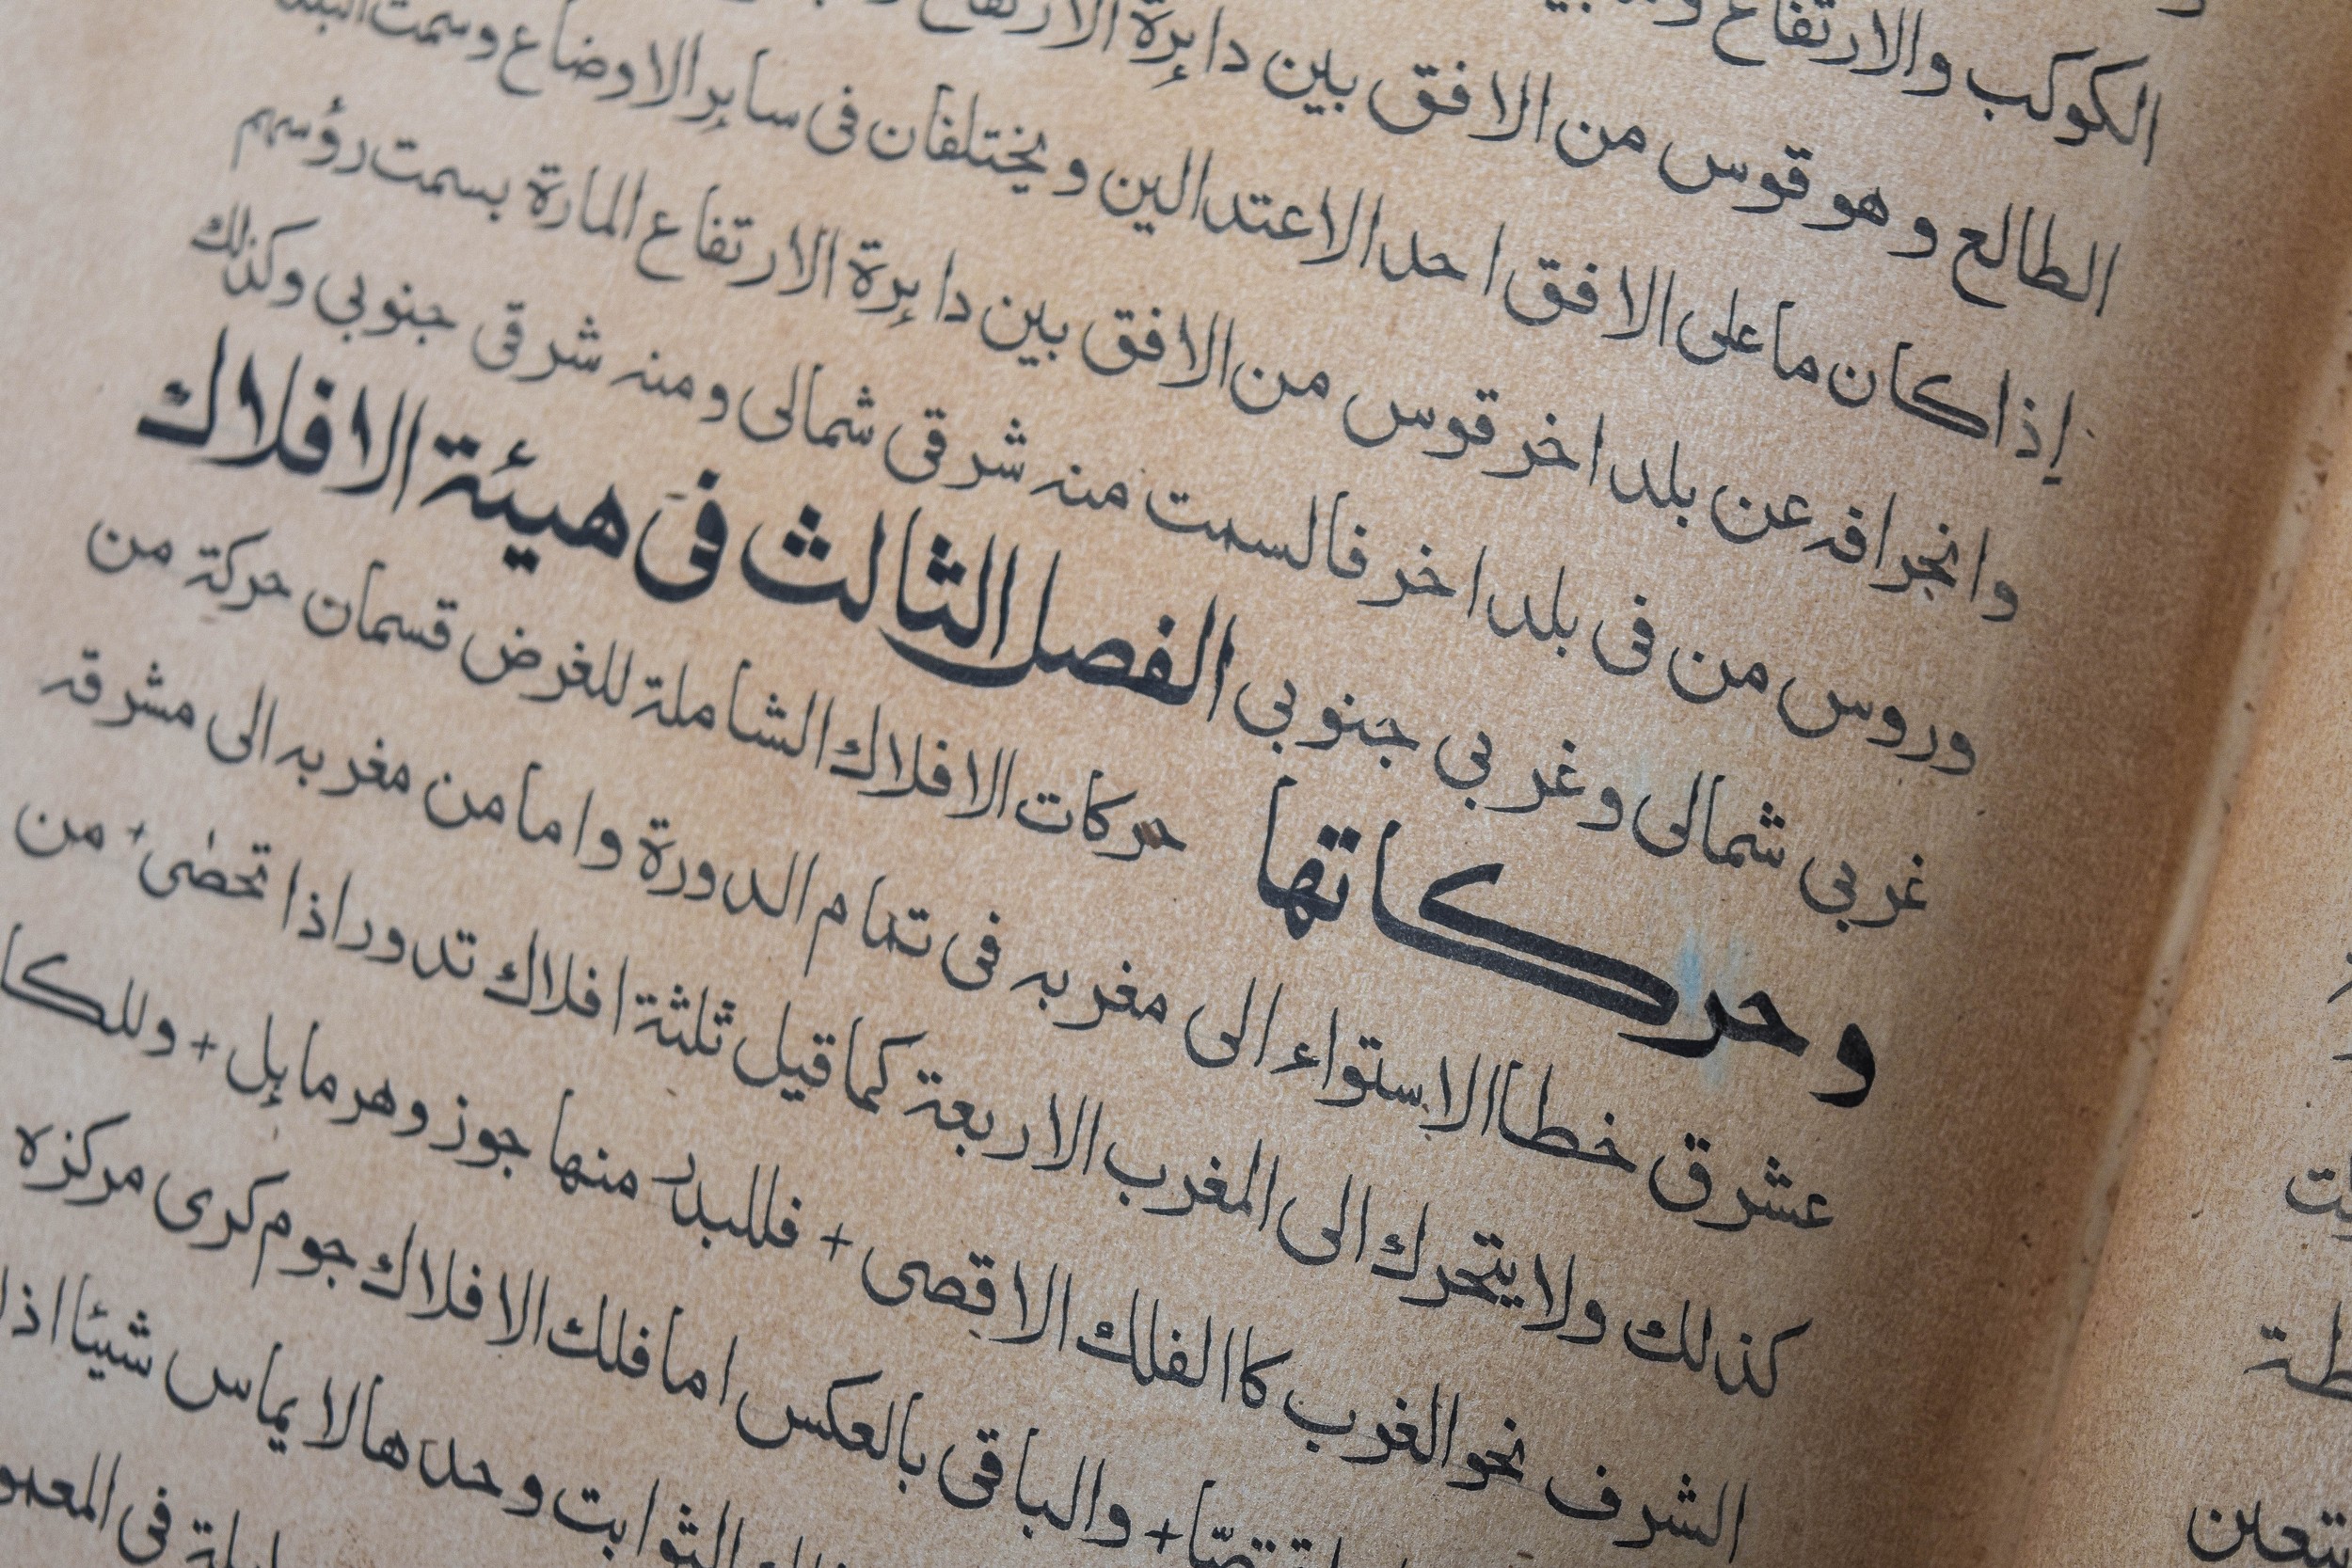 الكوكب والارتفاع
الطالع وهو قوس من الافق بين دايرة
إذا كان ما على الافق احد الاعتدالين ويختلفان فى ساير الاوضاع وسمت
وانحرافه عن بلد اخر قوس من الافق بين دايرة الارتفاع المارة بسمت رؤسهم
وروس من فى بلد اخر فالسمت منه شرقى شمالى ومنه شرقى جنوبى وكذلك
غربى شمالى وغربى جنوبى الفصل الثالث فى هيئة الافلاك
وحركاتها حركات الافلاك الشاملة للغرض قسمان حركة من
عشرق خطا الاستواء الى مغربه فى تمام الدورة واما من مغربه الى مشرقه
كذلك ولا يتحرك الى المغرب الاربعة كما قيل ثلثة افلاك تدور اذا تحضىء من
الشرف نحو الغرب كاالفلك الاقصى + فللبدر منها جوز وهرمايل + وللكا
+ والباقى بالعكس اما فلك الافلاك جوم كرى مركزه
الثوابت وحدها لا يماس شيئا اذا
فى